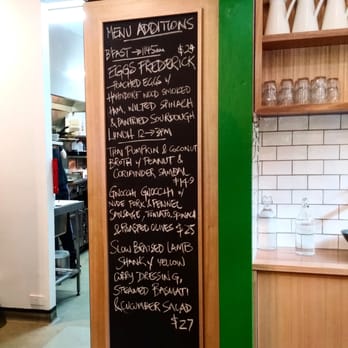 MENU ADDITIONS
B'FAST → 1145am
$24
EGGS FREDERICK
POACHED EGGS w/
HAHNDORF WOOD SMOKED
HAM, WILTED SPINACH
& PANFRIED SOURDOUGH
LUNCH 12 → 3PM
THAI PUMPKIN & COCONUT
BROTH w/ PEANUT &
CORIANDER SAMBAL
$14.9
GNOCCHI GNOCCHI w/
NUDE PORK & FENNEL
SAUSAGE, TOMATO, SPINACH
& ROASTED OLIVES $25
SLOW BRAISED LAMB
SHANK w/ YELLOW
CURRY DRESSING,
STEAMED BASMATI
& CUCUMBER SALAD
$27